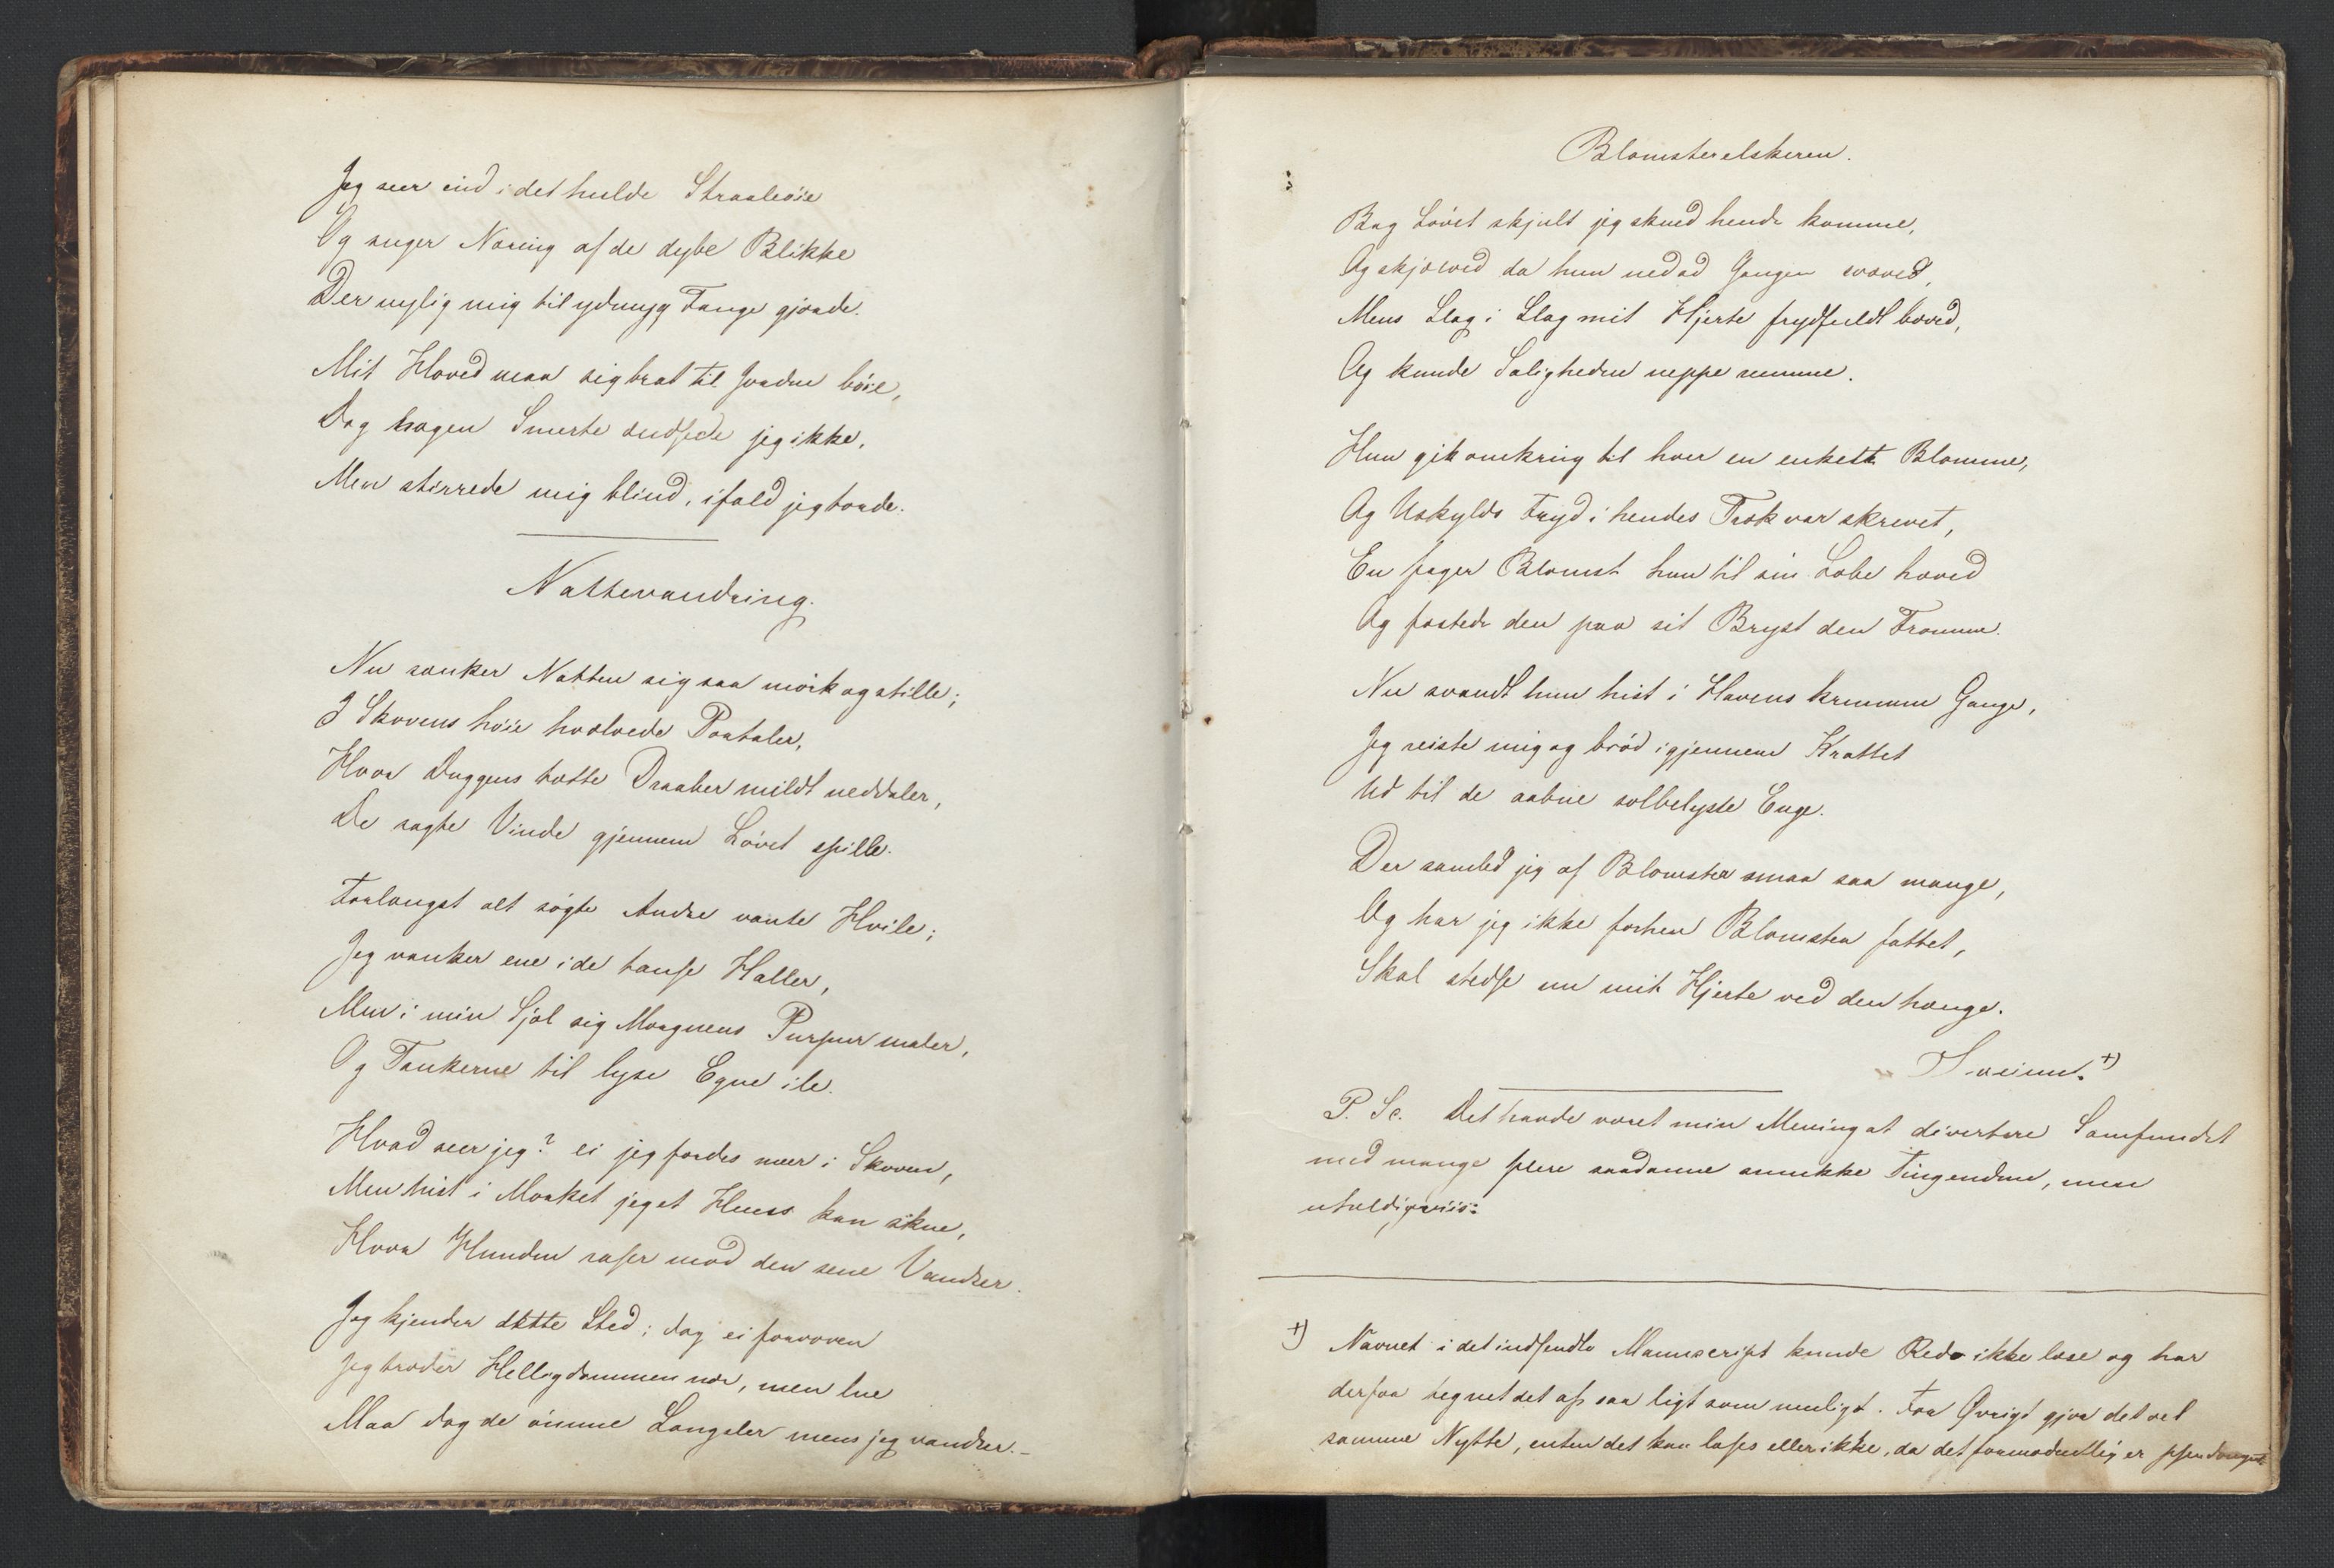 Jeg seer ind i det hulde Straaleöie
Og suger Næring af de dybe Blikke
Der nylig mig til ydmyg Fange gjorde.
Mit Hoved maa sig brat til Jorden böie,
Dog tragen Smerte ændsede jeg ikke,
Men stirrede mig blind, ifald jeg torde.
Nattevandring.
Nu sænker Natten sig saa mörk og stille;
I Skovens höie hvælvede Portaler,
Hvor Duggens tætte Draaber mildt neddaler,
De sagte Vinde gjennem Lövet spille.
Forlængst alt sögte Andre vante Hvile;
Jeg vanker ene i de tause Haller,
Men i min Sjæl sig Morgnens Purpur maler,
Og Tankerne til lyse Egne ile.
Hvad seer jeg? ei jeg færdes meer i Skoven,
Men hist i Mörket jeg et Huus kan skue,
Hvor Hunden raser mod den sene Vandrer.
Jeg kjender dette Sted; dog ei forvoven
Jeg træder Helligdommen nær, men lue
Maa dog de ömme Længsler mens jeg vandrer.-
Blomsterelskeren.
Bag Lövet skjult jeg skued hende komme,
Og skjælved da hun nedad Gangen sværed,
Mens Slag i Slag mit Hjerte frydfuldt bæved,
Og kunde Saligheden neppe rumme.
Hun gik omkring til hver en enkelt Blomme,
Og Uskylds Fryd i hendes Træk var skrevet,
En fager Blomst hun til sin Læbe hæved
Og fæsted den paa sit Bryst den Fromme.
Nu svandt hun hist i Havens krumme Gange,
Jeg reiste mig og bröd igjennem Krattet
Ud til de aabne solbelyste Enge.
Der samled jeg af Blomster smaa saa mange,
Og har jeg ikke förhen Blomsten fattet,
Skal stedse nu mit Hjerte ved den hænge.
+)
P. Sc. Det havde været min Mening at divertere Samfundet
med mange flere saadanne smukke Tingendene, men
uheldigviis:
+) Navnet i det indsendte Manuscript kunde Red. ikke læse og har
derfor tegnet det af saa ligt som muligt. For Øvrigt gjör det vel
samme Nytte, enten det kan læses eller ikke, da det formodentlig er pseudonymt.